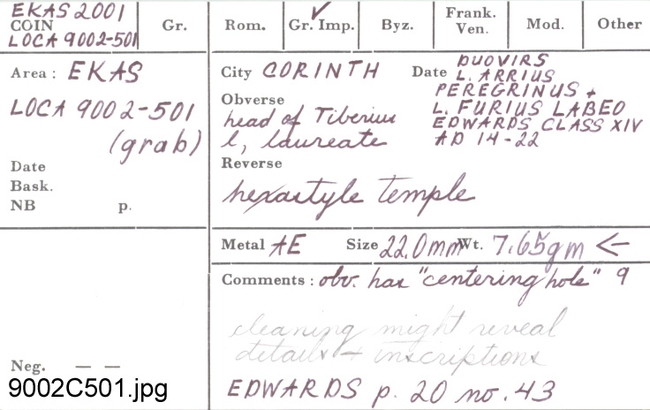 EKAS 2001
COIN
LOCA 9002-501
Gr.
Rom.
✓
Gr. Imp.
Byz.
Frank.
Ven.
Mod.
Other
Area : EKAS
LOCA 9002-501
(grab)
Date
Bask.
NB p.
City CORINTH
Date DUOVIRS
L. ARRIUS
PEREGRINUS +
L. FURIUS LABEO
EDWARDS CLASS XIV
AD 14-22
Obverse
head of Tiberius
l, laureate
Reverse
hexastyle temple
Metal AE Size 22.0mm Wt. 7.65gm ←
Comments : obv. has "centering hole" 9
cleaning might reveal
details + inscriptions
EDWARDS p. 20 no. 43
Neg. — —
9002C501.jpg